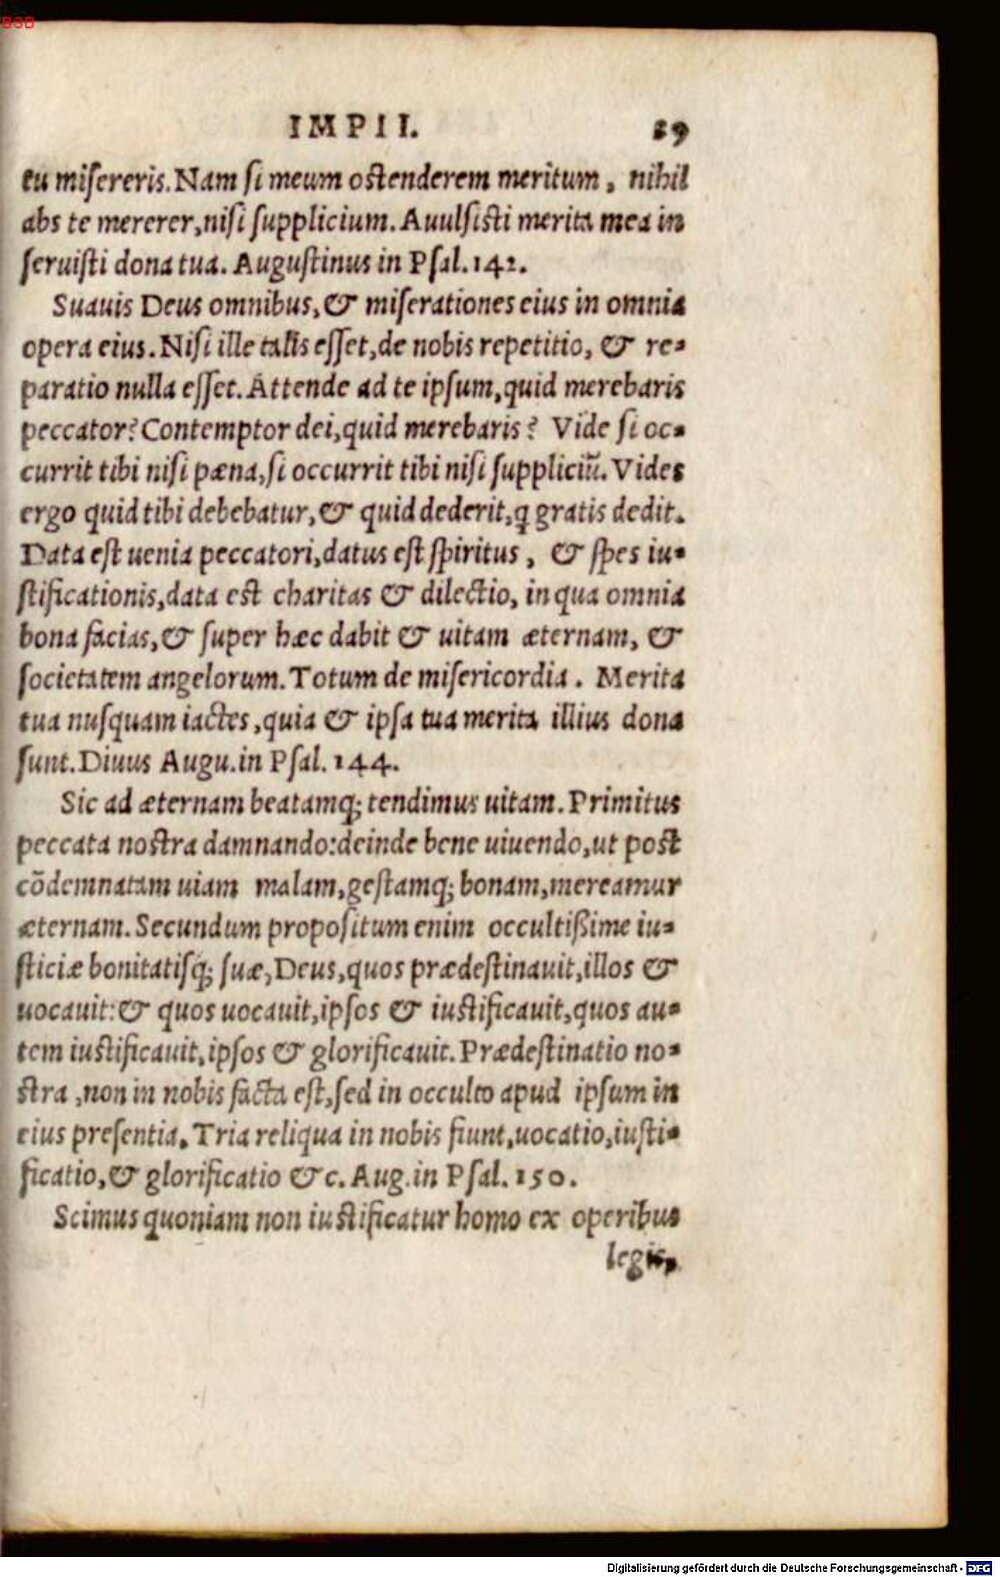 BSB
IMPII. 29
tu misereris. Nam si meum ostenderem meritum, nihil
abs te mererer, nisi supplicium. Auulsisti merita mea in
seruisti dona tua. Augustinus in Psal. 142.
Suauis Deus omnibus, & miserationes eius in omnia
opera eius. Nisi ille talis esset, de nobis repetitio, & re-
paratio nulla esset. Attende ad te ipsum, quid merebaris
peccator? Contemptor dei, quid merebaris? Vide si oc-
currit tibi nisi pæna, si occurrit tibi nisi suppliciũ. Vides
ergo quid tibi debebatur, & quid dederit, ꝗ gratis dedit.
Data est uenia peccatori, datus est spiritus, & spes iu-
stificationis, data est charitas & dilectio, in qua omnia
bona facias, & super hæc dabit & uitam æternam, &
societatem angelorum. Totum de misericordia. Merita
tua nusquam iactes, quia & ipsa tua merita illius dona
sunt. Diuus Augu. in Psal. 144.
Sic ad æternam beatamq; tendimus uitam. Primitus
peccata nostra damnando: deinde bene uiuendo, ut post
cōdemnatam uiam malam, gestamq; bonam, mereamur
æternam. Secundum propositum enim occultißime iu-
sticiæ bonitatisq; suæ, Deus, quos prædestinauit, illos &
uocauit: & quos uocauit, ipsos & iustificauit, quos au-
tem iustificauit, ipsos & glorificauit. Prædestinatio no-
stra, non in nobis facta est, sed in occulto apud ipsum in
eius presentia. Tria reliqua in nobis fiunt, uocatio, iusti-
ficatio, & glorificatio &c. Aug. in Psal. 150.
Scimus quoniam non iustificatur homo ex operibus
legis,
Digitalisierung gefördert durch die Deutsche Forschungsgemeinschaft - DFG